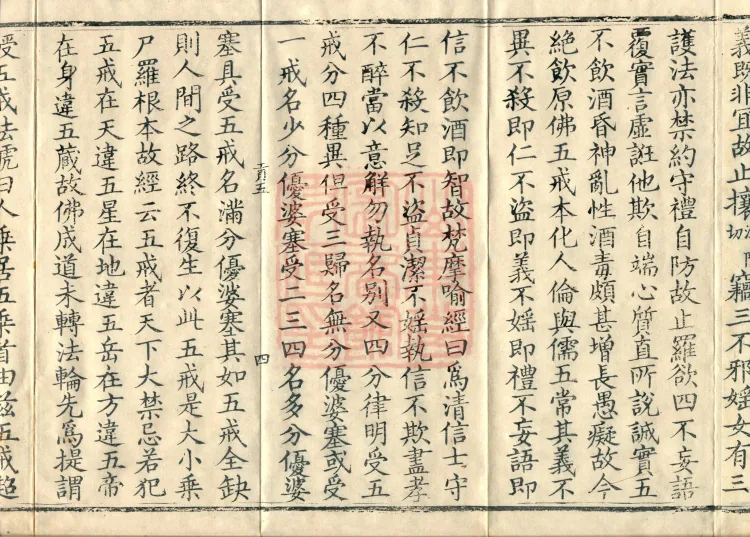 義既非宜故止攘竊三不邪婬女有三
護法亦禁約守禮自防故止羅欲四不妄語
覆實言虛誑他欺自端心質直所說誠實五
不飲酒昏神亂性酒毒頗甚增長愚癡故令
絕飲原佛五戒本化人倫與儒五常其義不
異不殺即仁不盜即義不婬即禮不妄語即
信不飲酒即智故梵摩喻經曰爲清信士守
仁不殺知足不盜貞潔不婬執信不欺盡孝
不醉當以意解勿執名別又四分律明受五
戒分四種異但受三歸名無分優婆塞或受
一戒名少分優婆塞受二三四名多分優婆
貢五
四
塞具受五戒名滿分優婆塞其如五戒全缺
則人間之路終不復生以此五戒是大小乘
尸羅根本故經云五戒者天下大禁忌若犯
五戒在天違五星在地違五岳在方違五帝
在身違五藏故佛成道未轉法輪先爲提謂
受五戒法號曰人乘居五乘首由茲五戒超